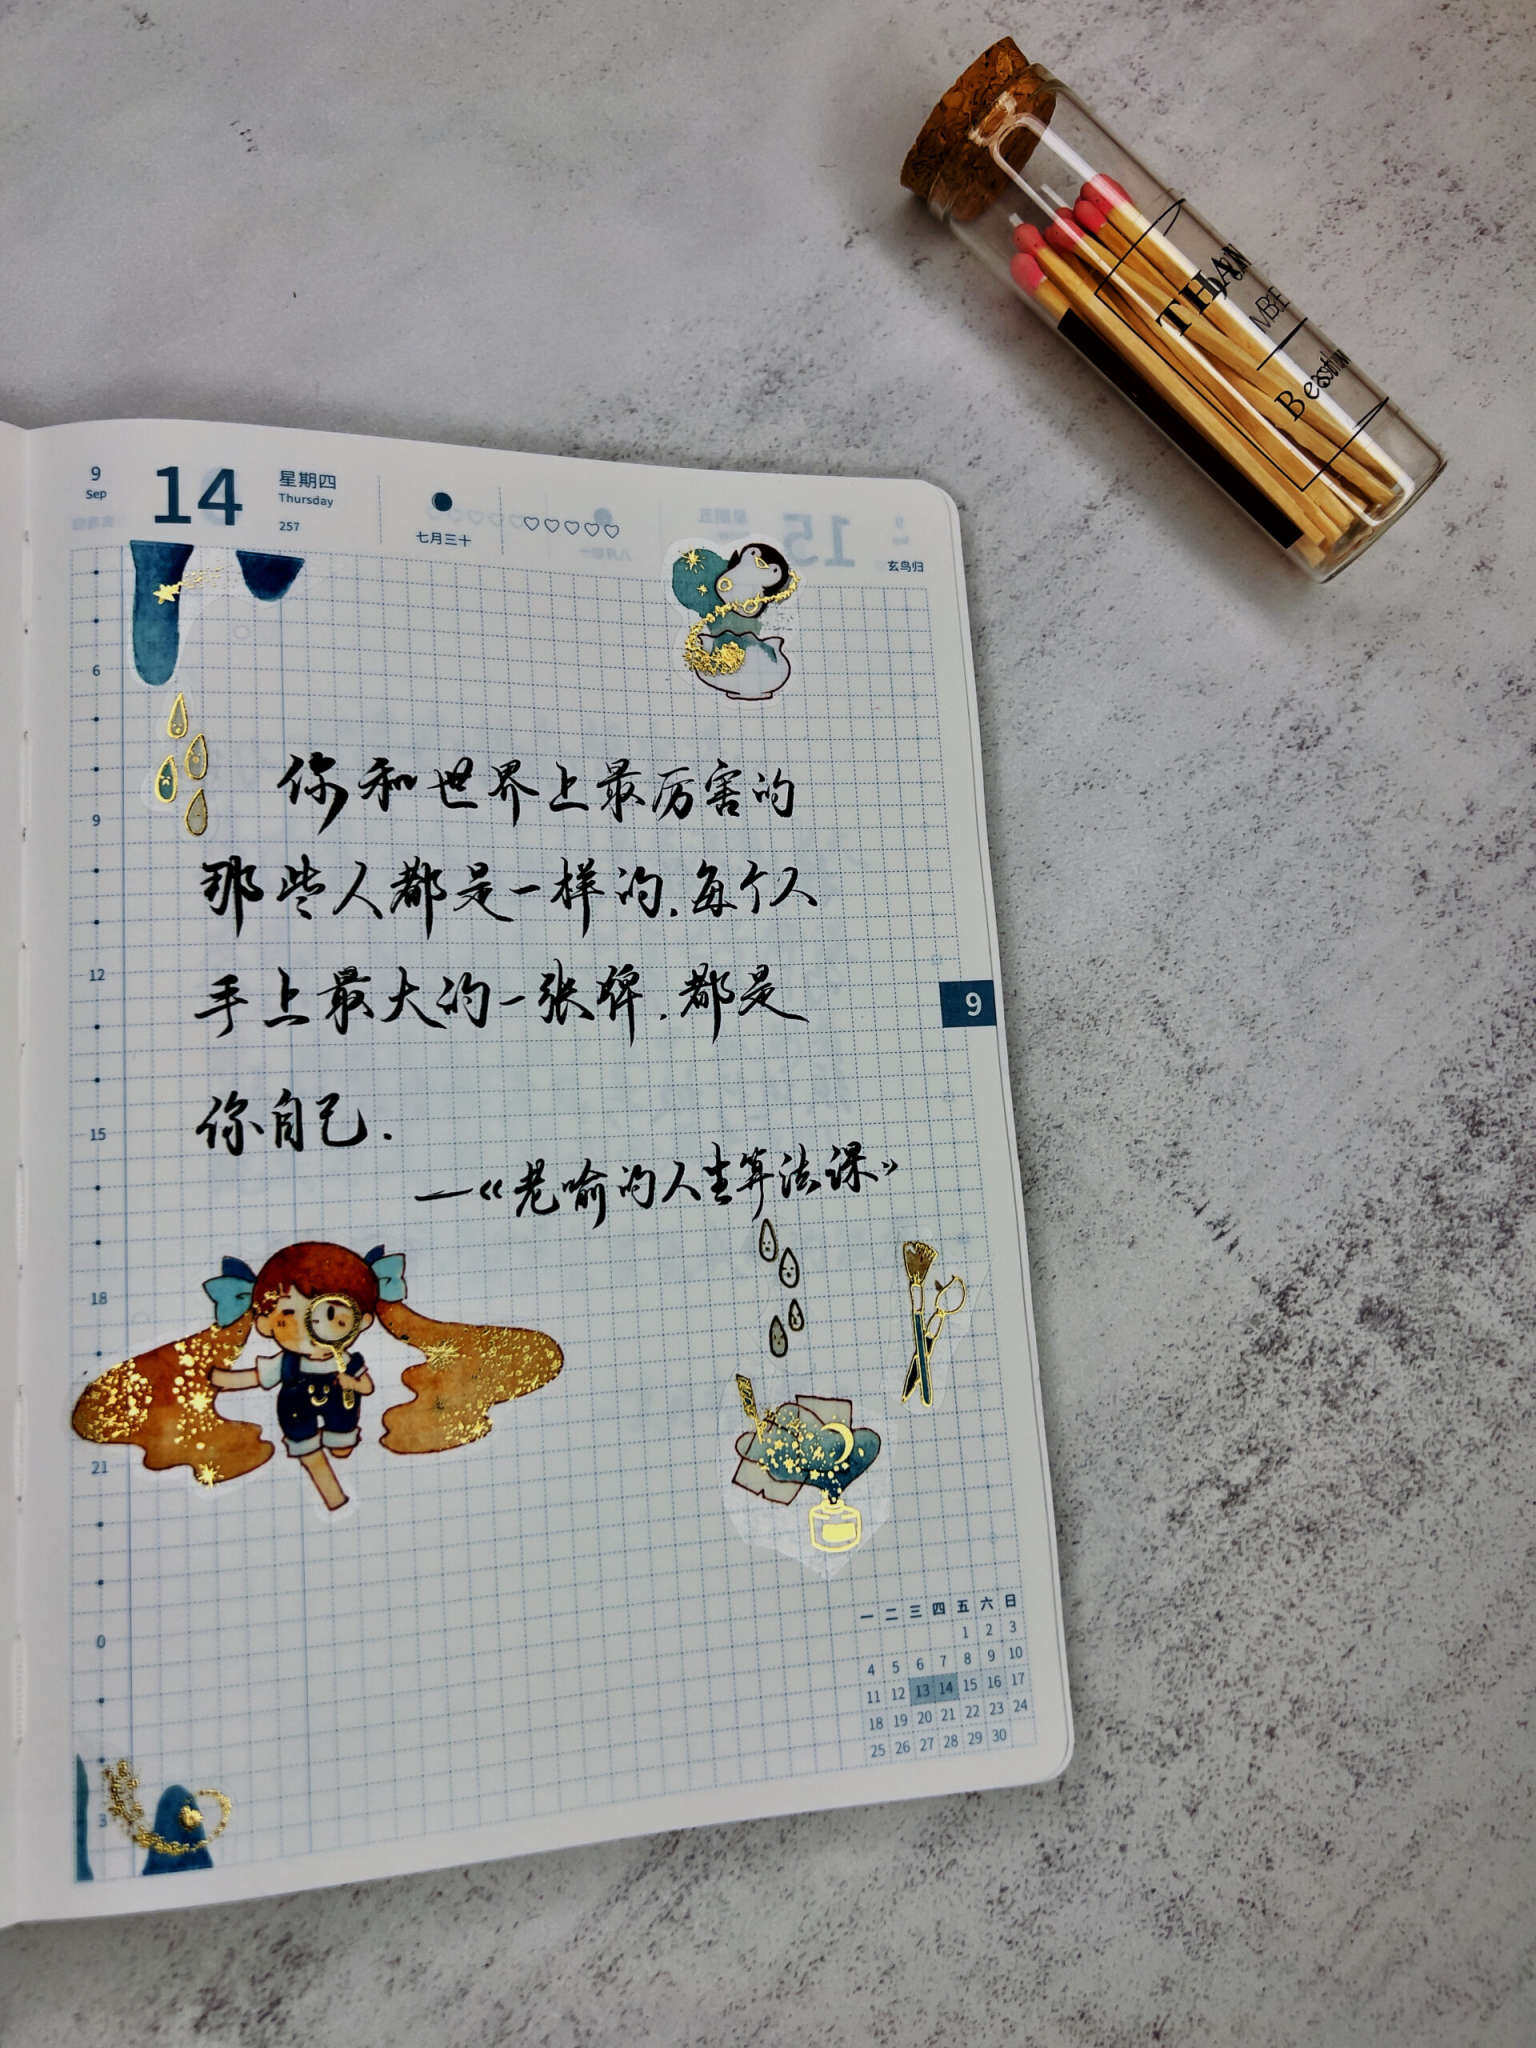 9
Sep
14
星期四
Thursday
257
七月三十
玄鸟归
6
9
12
15
18
21
0
3
你和世界上最厉害的
那些人都是一样的.每个人
手上最大的一张牌.都是
你自己.
—《老喻的人生算法课》
9
一 二 三 四 五 六 日
1 2 3
4 5 6 7 8 9 10
11 12 13 14 15 16 17
18 19 20 21 22 23 24
25 26 27 28 29 30